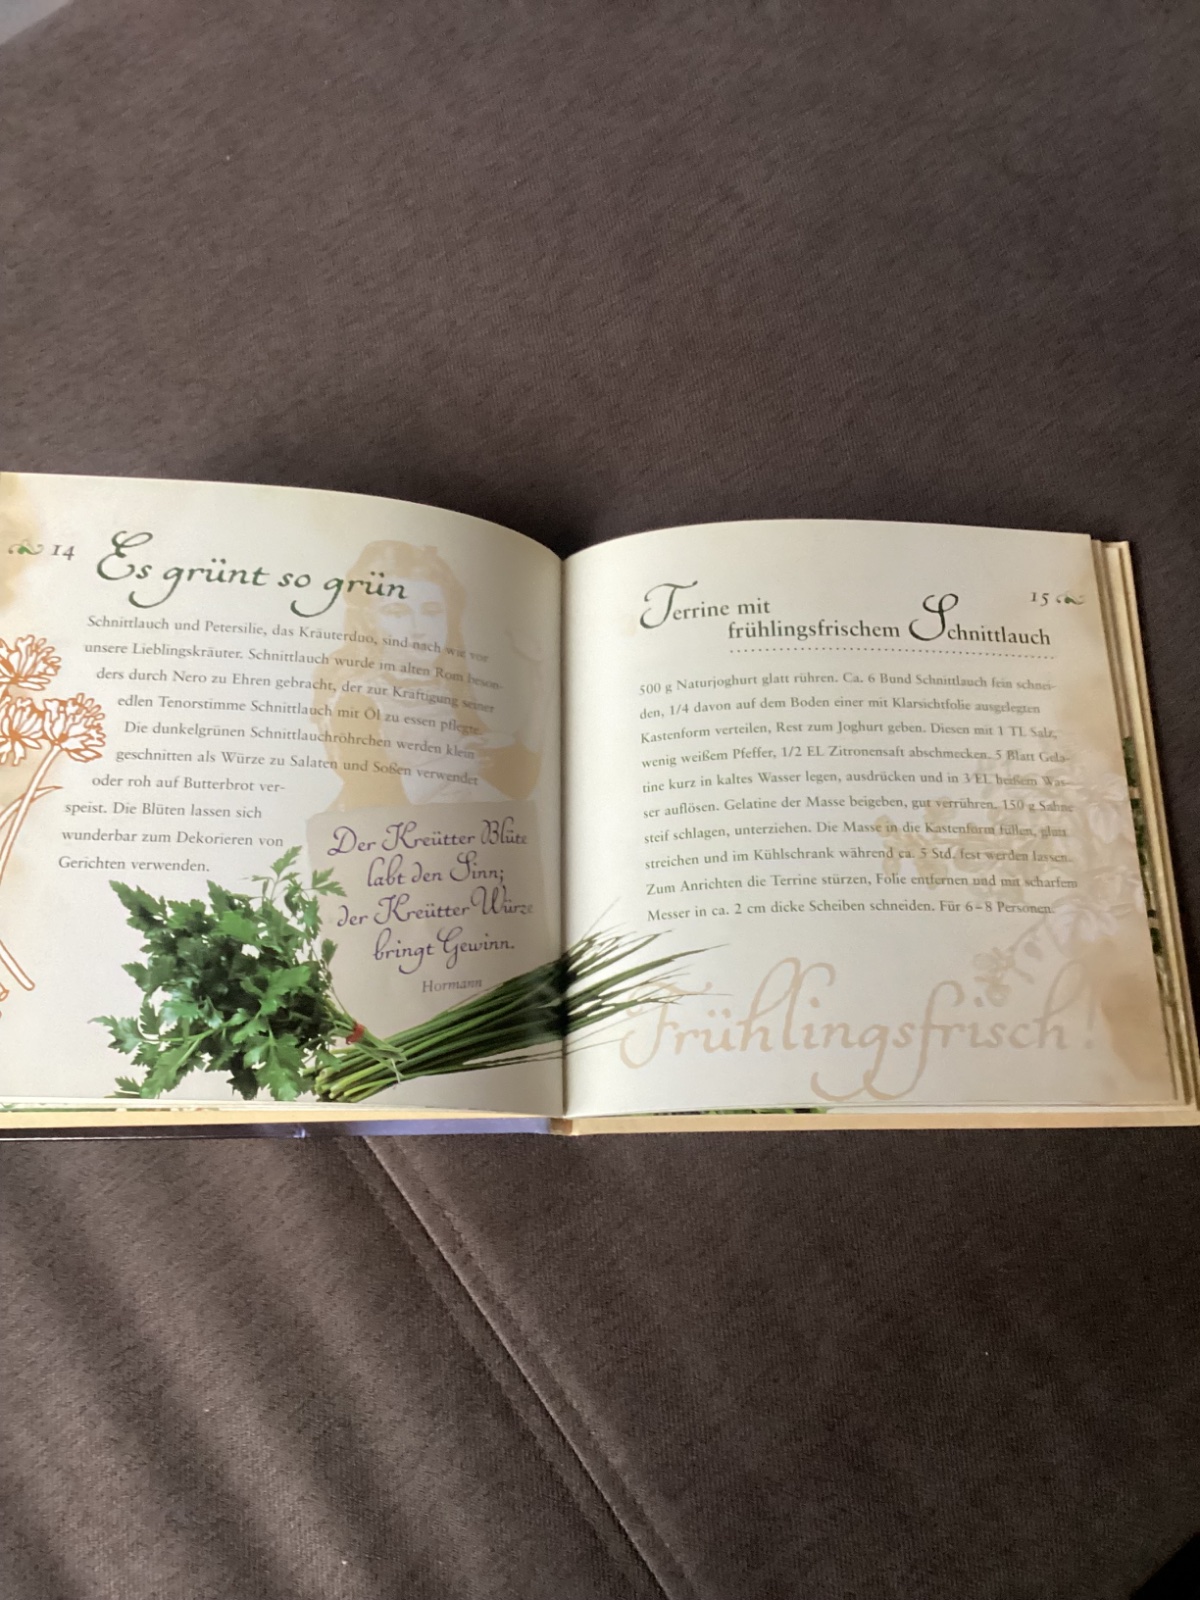 14
Es grünt so grün
Schnittlauch und Petersilie, das Kräuterduo, sind nach wie vor
unsere Lieblingskräuter. Schnittlauch wurde im alten Rom beson-
ders durch Nero zu Ehren gebracht, der zur Kräftigung seiner
edlen Tenorstimme Schnittlauch mit Öl zu essen pflegte.
Die dunkelgrünen Schnittlauchröhrchen werden klein
geschnitten als Würze zu Salaten und Soßen verwendet
oder roh auf Butterbrot ver-
speist. Die Blüten lassen sich
wunderbar zum Dekorieren von
Gerichten verwenden.
Der Kreütter Blüte
labt den Sinn;
der Kreütter Würze
bringt Gewinn.
Hormann
15
Terrine mit
frühlingsfrischem Schnittlauch
500 g Naturjoghurt glatt rühren. Ca. 6 Bund Schnittlauch fein schnei-
den, 1/4 davon auf dem Boden einer mit Klarsichtfolie ausgelegten
Kastenform verteilen, Rest zum Joghurt geben. Diesen mit 1 TL Salz,
wenig weißem Pfeffer, 1/2 EL Zitronensaft abschmecken. 5 Blatt Gela-
tine kurz in kaltes Wasser legen, ausdrücken und in 3 EL heißem Was-
ser auflösen. Gelatine der Masse beigeben, gut verrühren. 150 g Sahne
steif schlagen, unterziehen. Die Masse in die Kastenform füllen, glatt
streichen und im Kühlschrank während ca. 5 Std. fest werden lassen.
Zum Anrichten die Terrine stürzen, Folie entfernen und mit scharfem
Messer in ca. 2 cm dicke Scheiben schneiden. Für 6–8 Personen.
Frühlingsfrisch!